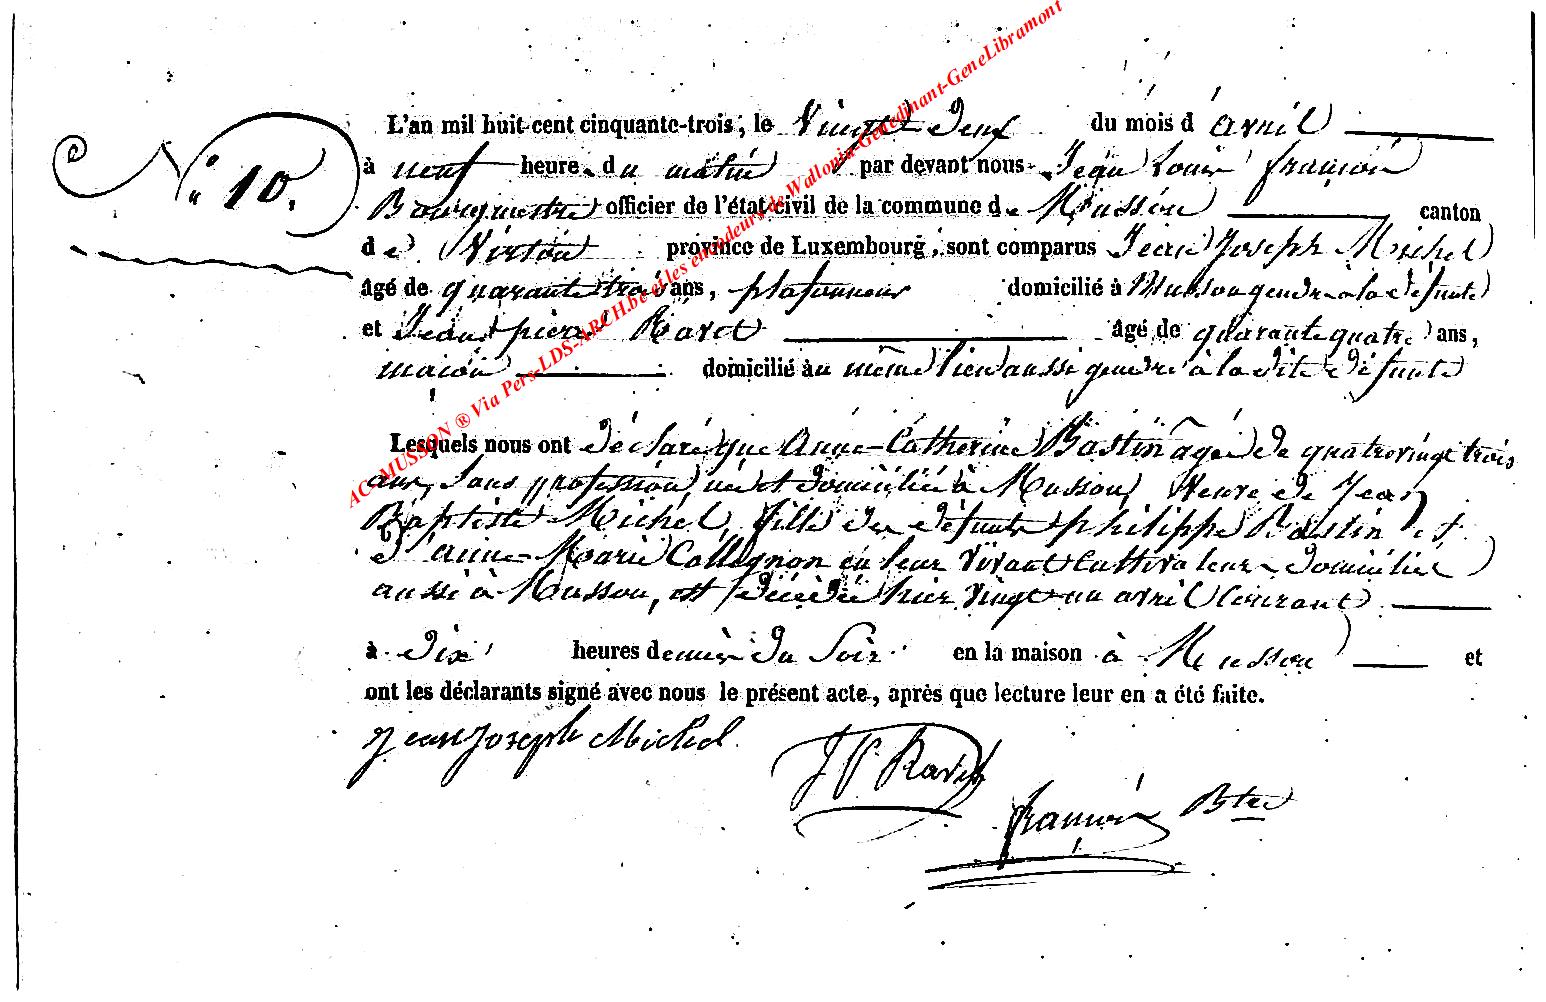 N° 10.
L'an mil huit cent cinquante-trois, le Vingt deux du mois d'avril
à neuf heures du matin par devant nous Jean Louis françois
Bourgmestre officier de l'état civil de la commune de Musson canton
de Virton province de Luxembourg, sont comparus Jean Joseph Michel
âgé de quarante trois ans, plafonneur domicilié à Musson gendre à la défunte
et Jean pierre Ravet âgé de quarante quatre ans,
maçon domicilié au même lieu aussi gendre à la dite défunte
Lesquels nous ont déclaré que Anne-Catherine Bastin âgée de quatrevingt trois
ans, sans profession, née et domiciliée à Musson, Veuve de Jean
Baptiste Michel, fille des défunts philippe Bastin et
d'anne-Marie Collignon en leur vivant Cultivateurs domiciliés
aussi à Musson, est décédée hier vingt-un avril courant
à dix heures demies du soir en la maison à Musson et
ont les déclarants signé avec nous le présent acte, après que lecture leur en a été faite.
Jean Joseph Michel
J P Ravet
françois Btre
AC-MUSSON ® Via Pers-LDS-ARCH.be et les encodeurs de Wallonia-Genedinant-GeneLibramont